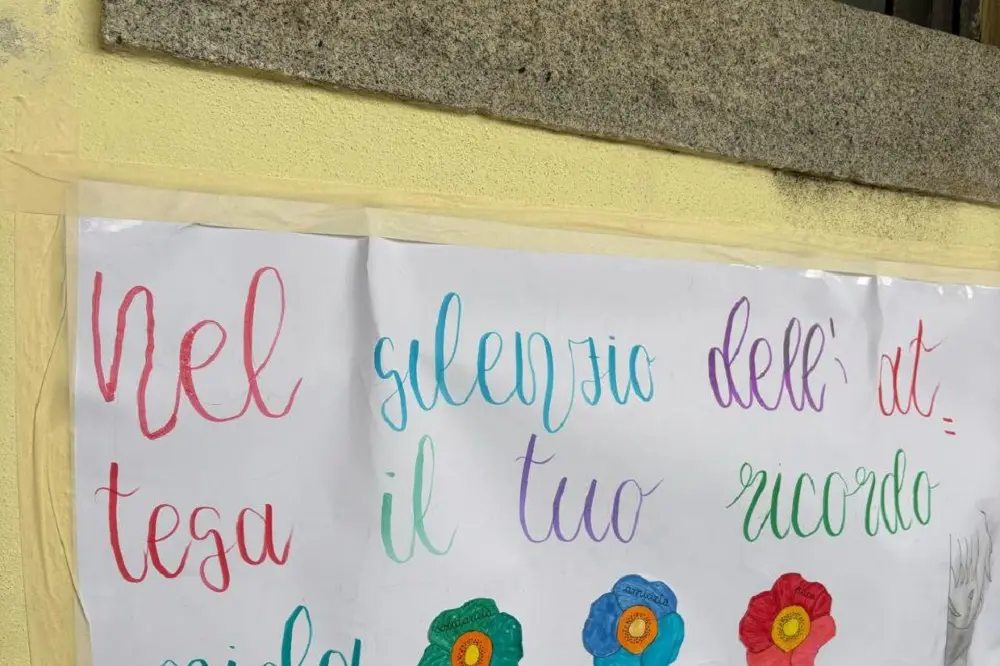 Nel silenzio dell' at=
tega il tuo ricordo
solidarietà
amicizia